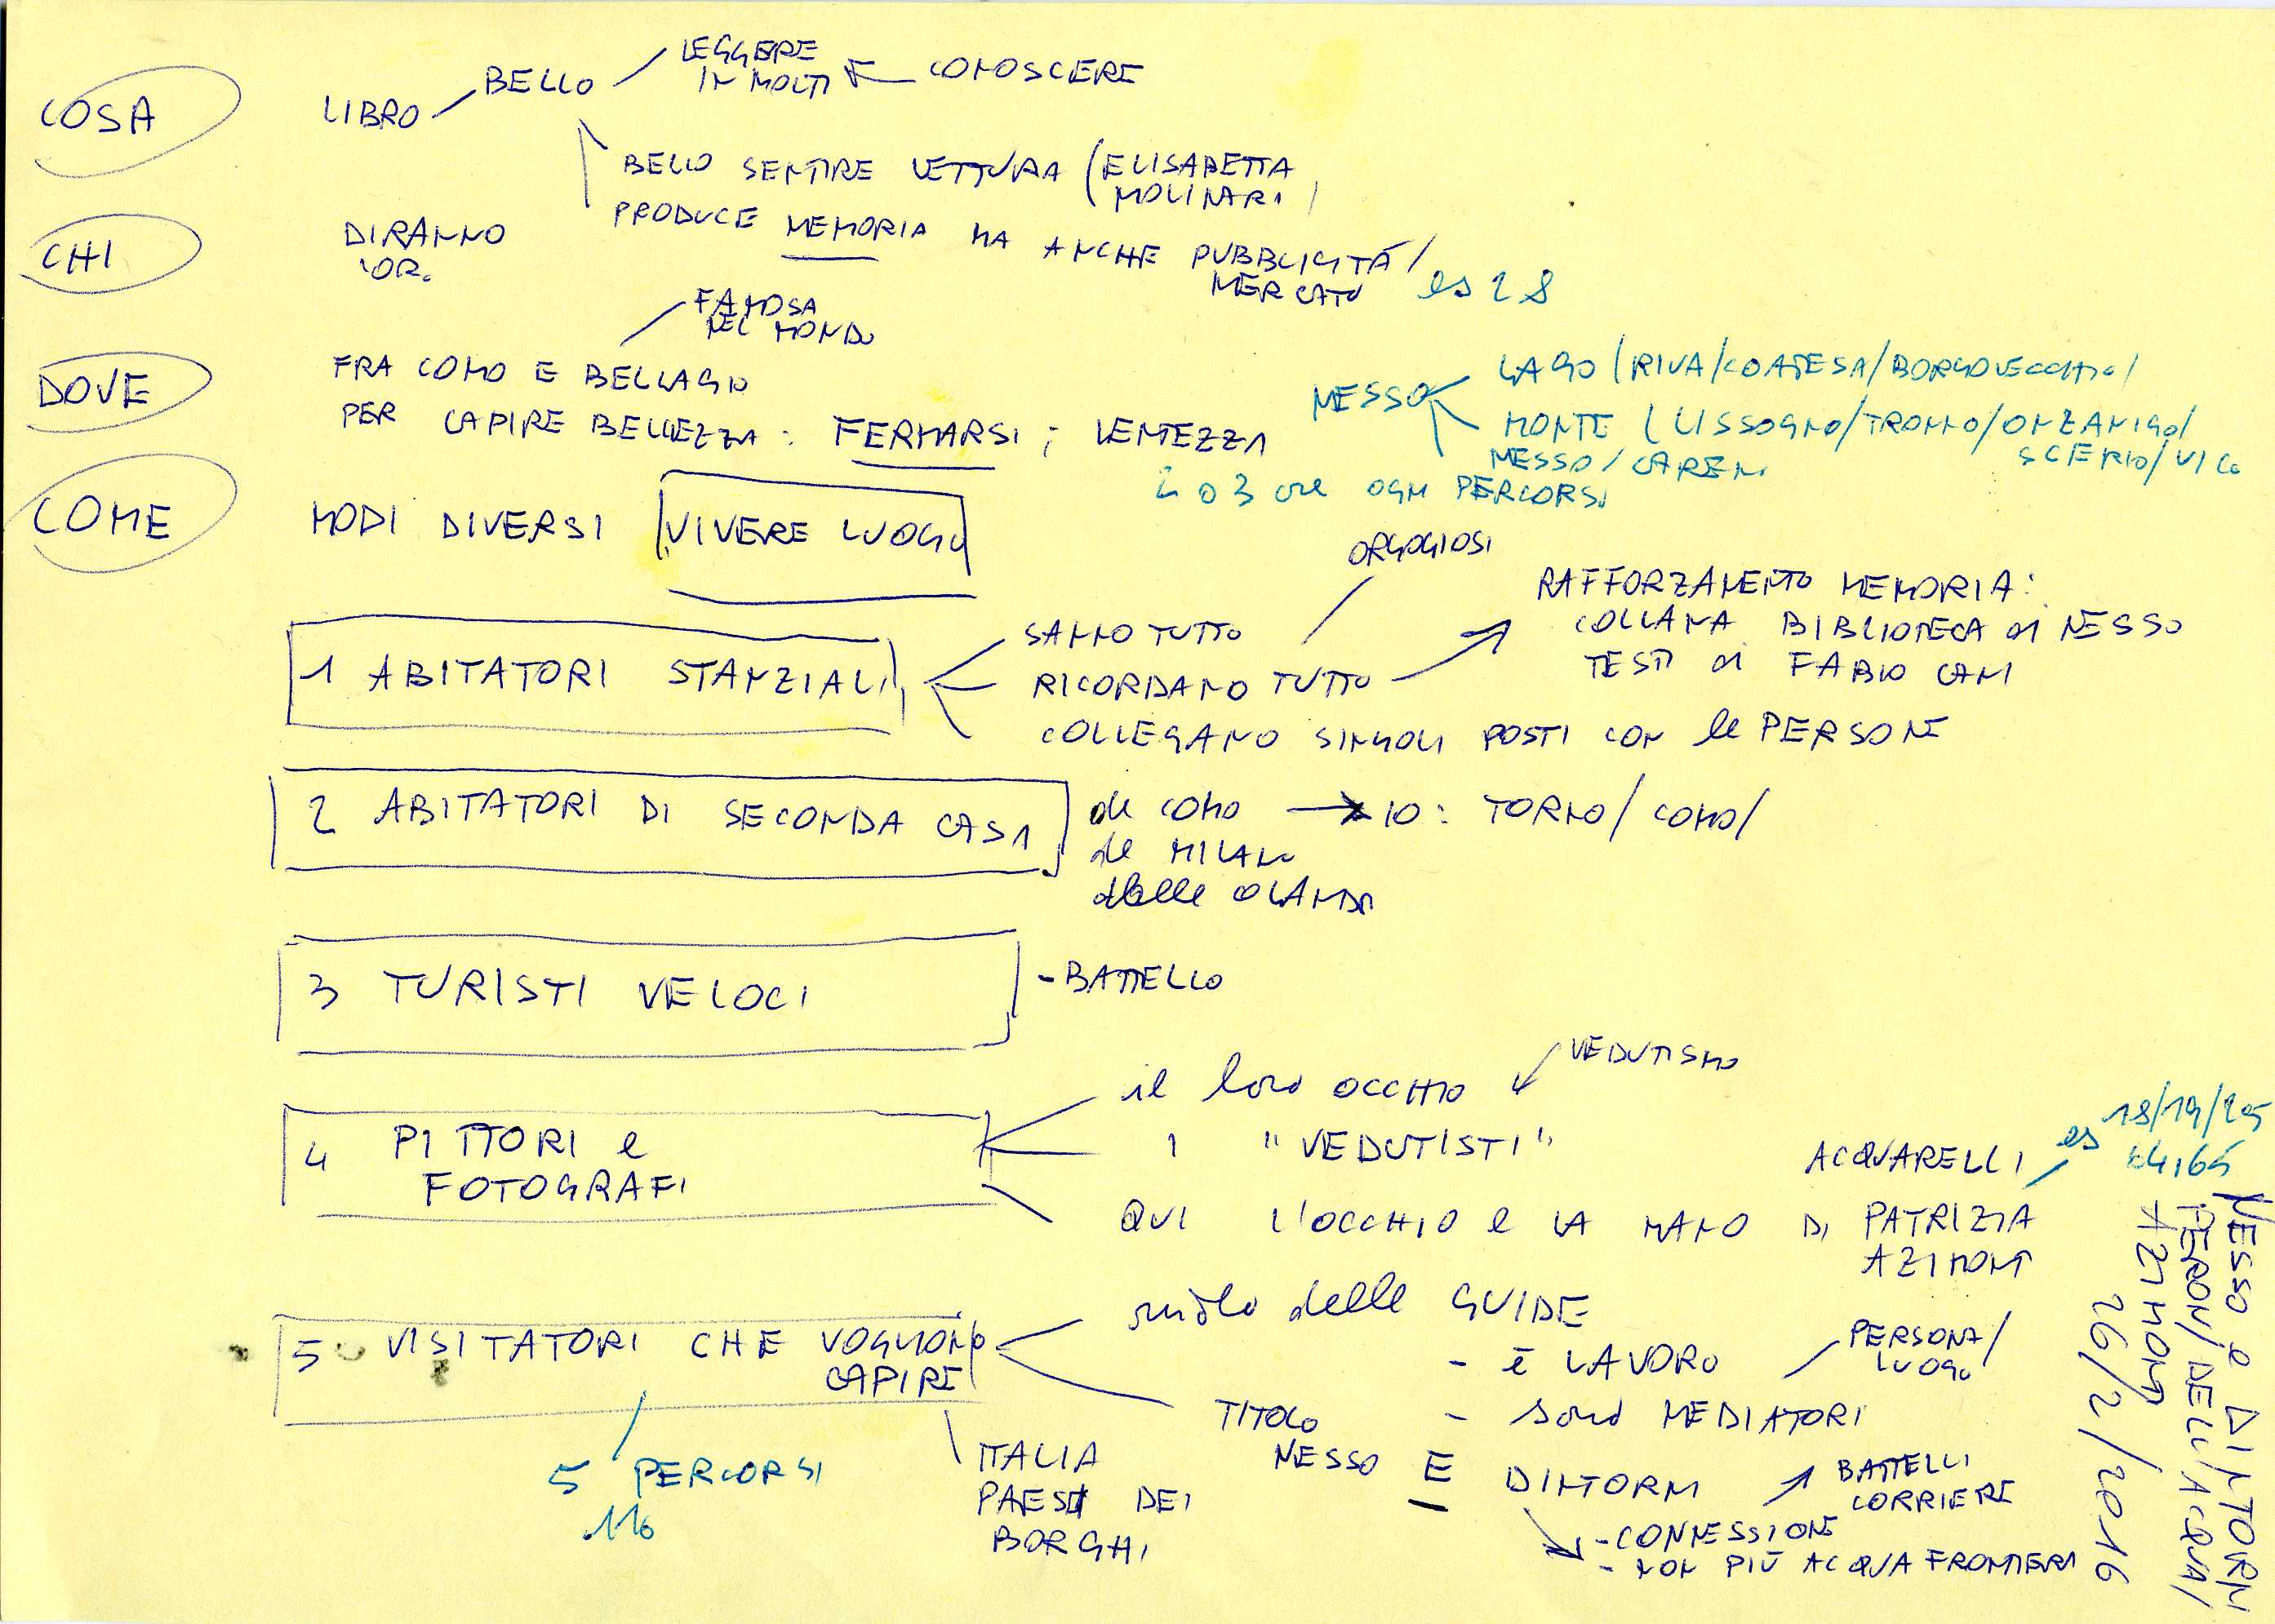 COSA
LIBRO
BELLO
LEGGERE
IN MOLTI
CONOSCERE
BELLO SENTIRE LETTURA (ELISABETTA
MOLINARI)
PRODUCE MEMORIA MA ANCHE PUBBLICITÁ/
MERCATO
es 28
CHI
DIRANNO
LOR.
DOVE
FAMOSA
NEL MONDO
FRA COMO E BELLAGIO
PER CAPIRE BELLEZZA: FERMARSI; LENTEZZA
NESSO
LAGO (RIVA/COATESA/BORGOVECCHIO/
MONTE (LISSOGNO/TRONNO/ONZANIGO/
SCERIO/VICO
NESSO/CARENO
2 o 3 ore OGNI PERCORSO
COME
MODI DIVERSI VIVERE LUOGO
1 ABITATORI STANZIALI
SANNO TUTTO
RICORDANO TUTTO
ORGOGLIOSI
RAFFORZAMENTO MEMORIA:
COLLANA BIBLIOTECA di NESSO
TESTI di FABIO CANI
COLLEGANO SINGOLI POSTI CON le PERSONE
2 ABITATORI DI SECONDA CASA
da COMO
IO: TORNO/ COMO/
da MILANO
dalle OLANDA
3 TURISTI VELOCI
- BATTELLO
4 PITTORI e
FOTOGRAFI
il loro OCCHIO
VEDUTISMO
I "VEDUTISTI"
QUI L'OCCHIO e LA MANO DI PATRIZIA
AZIMONTI
ACQUARELLI
es
5 VISITATORI CHE VOGLIONO
CAPIRE
5 PERCORSI
116
ITALIA
PAESE DEI
BORGHI
ruolo delle GUIDE
- è LAVORO
- sono MEDIATORI
PERSONA/
LUOGO
TITOLO
NESSO E DINTORNI
BATTELLI
CORRIERE
- CONNESSIONE
- NON PIÙ ACQUA FRONTIERA
NESSO e DINTORNI
PERON/DELL'ACQUA/
AZIMONTI
26/2/2016